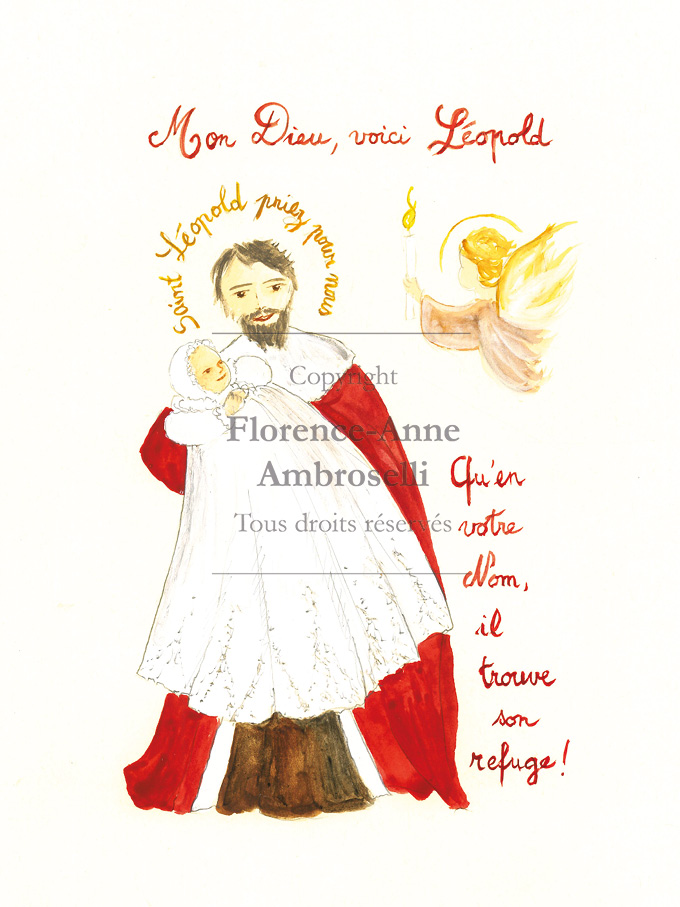 Mon Dieu, voici Léopold
Saint Léopold priez pour nous
Copyright
Florence-Anne
Ambroselli
Tous droits réservés
Qu'en
votre
Nom,
il
trouve
son
refuge !